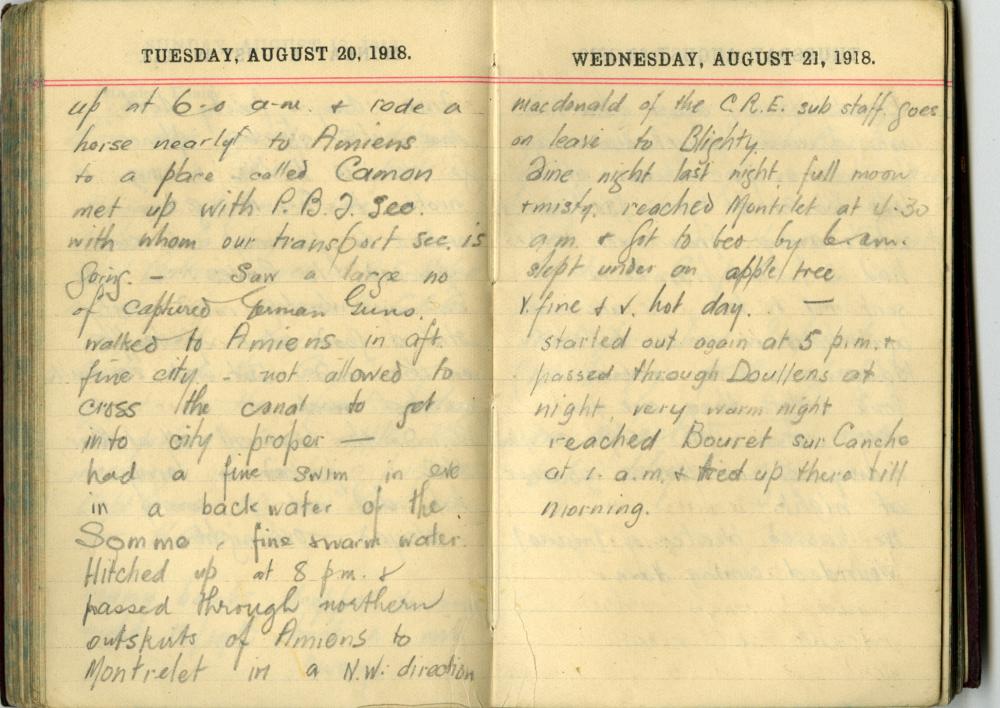 TUESDAY, AUGUST 20, 1918.
up at 6-0 a-m. + rode a
horse nearly to Amiens
to a place called Camon
met up with P.B.I. Sec.
with whom our transport sec. is
going. — Saw a large no
of captured German Guns.
walked to Amiens in aft.
fine city - not allowed to
cross the canal to get
into city proper —
had a fine swim in eve
in a back water of the
Somme, fine & warm water.
Hitched up at 8 p.m. &
passed through northern
outskirts of Amiens to
Montrelet in a N.W. direction
WEDNESDAY, AUGUST 21, 1918.
Macdonald of the C.R.E. sub staff. goes
on leave to Blighty.
Fine night last night, full moon
+ misty. reached Montrelet at 4-30
a.m. & got to bed by 6-am.
slept under an apple tree
V. fine & V. hot day. —
started out again at 5 p.m. +
passed through Doullens at
night, very warm night
reached Bouret sur Canche
at 1. a.m. & tied up there till
morning.